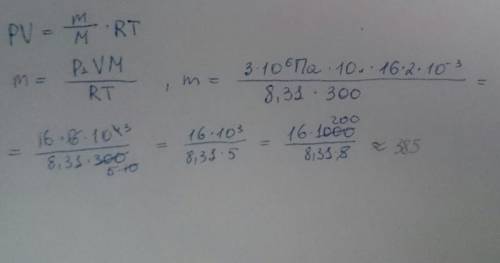 PV = m/M · RT
m = P₁VM/RT , m = 3·10⁶Па·10·16·2·10⁻³/8,31·300 =
= 16·6·10⁴³/8,31·300 5·10 = 16·10³/8,31·5 = 16·1000 200/8,31·8 ≈ 385